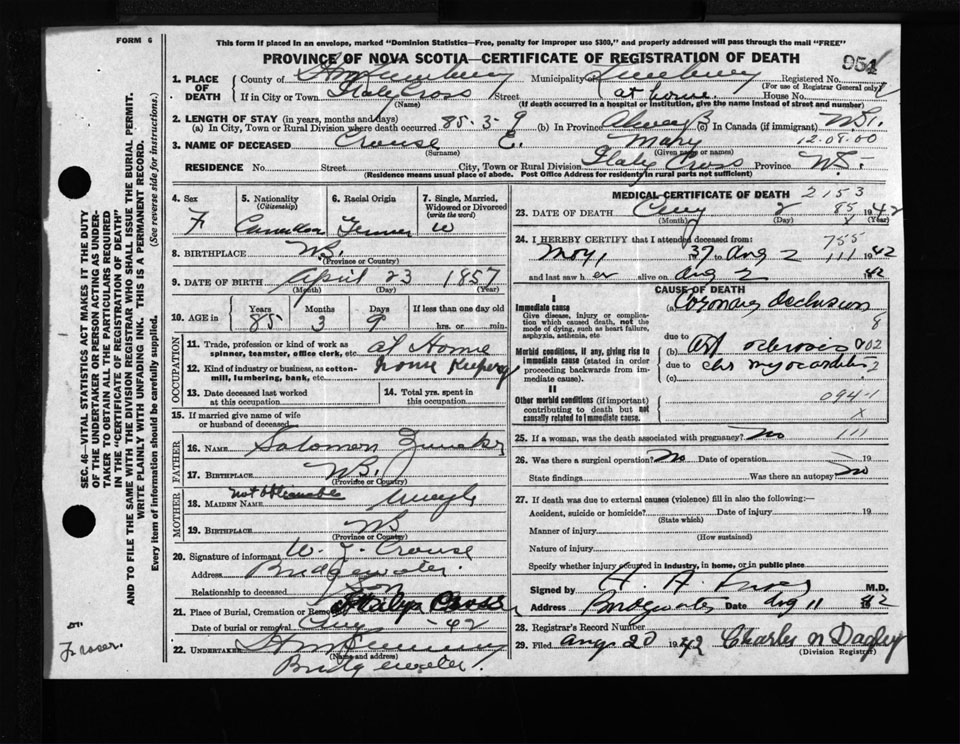 FORM 6
This form if placed in an envelope, marked "Dominion Statistics—Free, penalty for improper use $300," and properly addressed will pass through the mail "FREE"
PROVINCE OF NOVA SCOTIA—CERTIFICATE OF REGISTRATION OF DEATH
954
1. PLACE OF DEATH
County of Lunenburg Municipality Lunenburg Registered No.
(For use of Registrar General only)
If in City or Town Italy Cross Street at home House No.
(Name) (If death occurred in a hospital or institution, give the name instead of street and number)
2. LENGTH OF STAY (in years, months and days)
(a) In City, Town or Rural Division where death occurred 85-3-9 (b) In Province Always (c) In Canada (if immigrant)
12.05.00
3. NAME OF DECEASED Crouse E. Mary
(Surname) (Given name or names)
RESIDENCE No. Street City, Town or Rural Division Italy Cross Province N.S.
(Residence means usual place of abode. Post Office Address for residents in rural parts not sufficient)
4. Sex F
5. Nationality (Citizenship) Canadian
6. Racial Origin
7. Single, Married, Widowed or Divorced (write the word) W
8. BIRTHPLACE N.S.
(Province or Country)
9. DATE OF BIRTH April 23 1857
(Month) (Day) (Year)
10. AGE in Years Months Days If less than one day
85 3 9 hrs. or min.
OCCUPATION
11. Trade, profession or kind of work as spinner, teamster, office clerk, etc. at Home
12. Kind of industry or business, as cotton-mill, lumbering, bank, etc. Home Keeping
13. Date deceased last worked at this occupation
14. Total yrs. spent in this occupation
15. If married give name of wife or husband of deceased
FATHER
16. NAME Solomon Zwicker
17. BIRTHPLACE N.S.
(Province or Country)
MOTHER
18. MAIDEN NAME not obtainable
19. BIRTHPLACE NS
(Province or Country)
20. Signature of informant W. J. Crouse
Address Bridgewater.
Relationship to deceased Son
21. Place of Burial, Cremation or Removal Italy Cross
Date of burial or removal Aug -42
22. UNDERTAKER
(Name and address)
Bridgewater
MEDICAL CERTIFICATE OF DEATH 2153
23. DATE OF DEATH Aug 2 85 1942
(Month) (Day) X (Year)
755
24. I HEREBY CERTIFY that I attended deceased from:
May 1 37 Aug 2 111 1942
and last saw her alive on Aug 2 42
CAUSE OF DEATH
I
Immediate cause
Give disease, injury or complication which caused death, not the mode of dying, such as heart failure, asphyxia, asthenia, etc.
(a) Coronary Occlusion
8
due to
Morbid conditions, if any, giving rise to immediate cause (stated in order proceeding backwards from immediate cause).
(b) Art sclerosis 802
due to chr myocarditis 2
(c)
II
Other morbid conditions (if important) contributing to death but not causally related to immediate cause.
094-1
X
25. If a woman, was the death associated with pregnancy? No 111
26. Was there a surgical operation? No Date of operation 19
State findings Was there an autopsy? No
27. If death was due to external causes (violence) fill in also the following:—
Accident, suicide or homicide? Date of injury 19
(State which)
Manner of injury
(How sustained)
Nature of injury
Specify whether injury occurred in industry, in home, or in public place
Signed by H. A. M.D.
Address Bridgewater Date Aug 11 42
28. Registrar's Record Number
29. Filed Aug 20 1942 Charles N Dagley
(Division Registrar)
SEC. 46—VITAL STATISTICS ACT MAKES IT THE DUTY
OF THE UNDERTAKER OR PERSON ACTING AS UNDER-
TAKER TO OBTAIN ALL THE PARTICULARS REQUIRED
IN THE "CERTIFICATE OF REGISTRATION OF DEATH"
AND TO FILE THE SAME WITH THE DIVISION REGISTRAR WHO SHALL ISSUE THE BURIAL PERMIT.
WRITE PLAINLY WITH UNFADING INK. THIS IS A PERMANENT RECORD.
Every item of information should be carefully supplied. (See reverse side for instructions.)
Fraser.